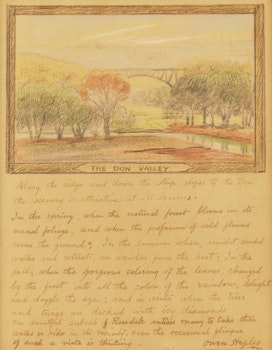 THE DON VALLEY
Along the ridge and down the slope to the Don
the scenery is attractive at all seasons.
In the spring, when the natural forest blooms in its
foliage, and when the profusion of wild flowers
covers the ground; In the summer when, amidst shaded
walks and retreat, one the heat; In the
fall, when the gorgeous coloring of the leaves, changed
by the frost into all the colors of the rainbow, delight
and dazzle the eye; and in winter when the trees
and twigs are decked with icy diamonds,
our beautiful suburb of Rosedale entices many to take their
walks or rides in its vicinity, even the occasional glimpse
of such a vista is thrilling. Owen Staples